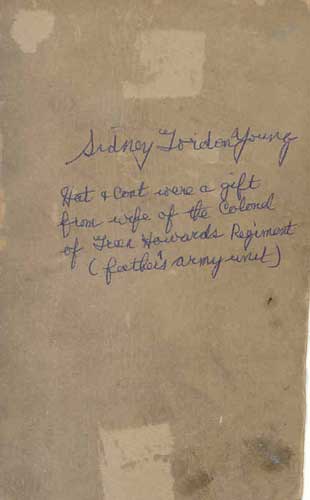 Sidney Gordon Young
Hat & Coat were a gift
from wife of the Colonel
of Green Howards Regiment
(father's army unit)